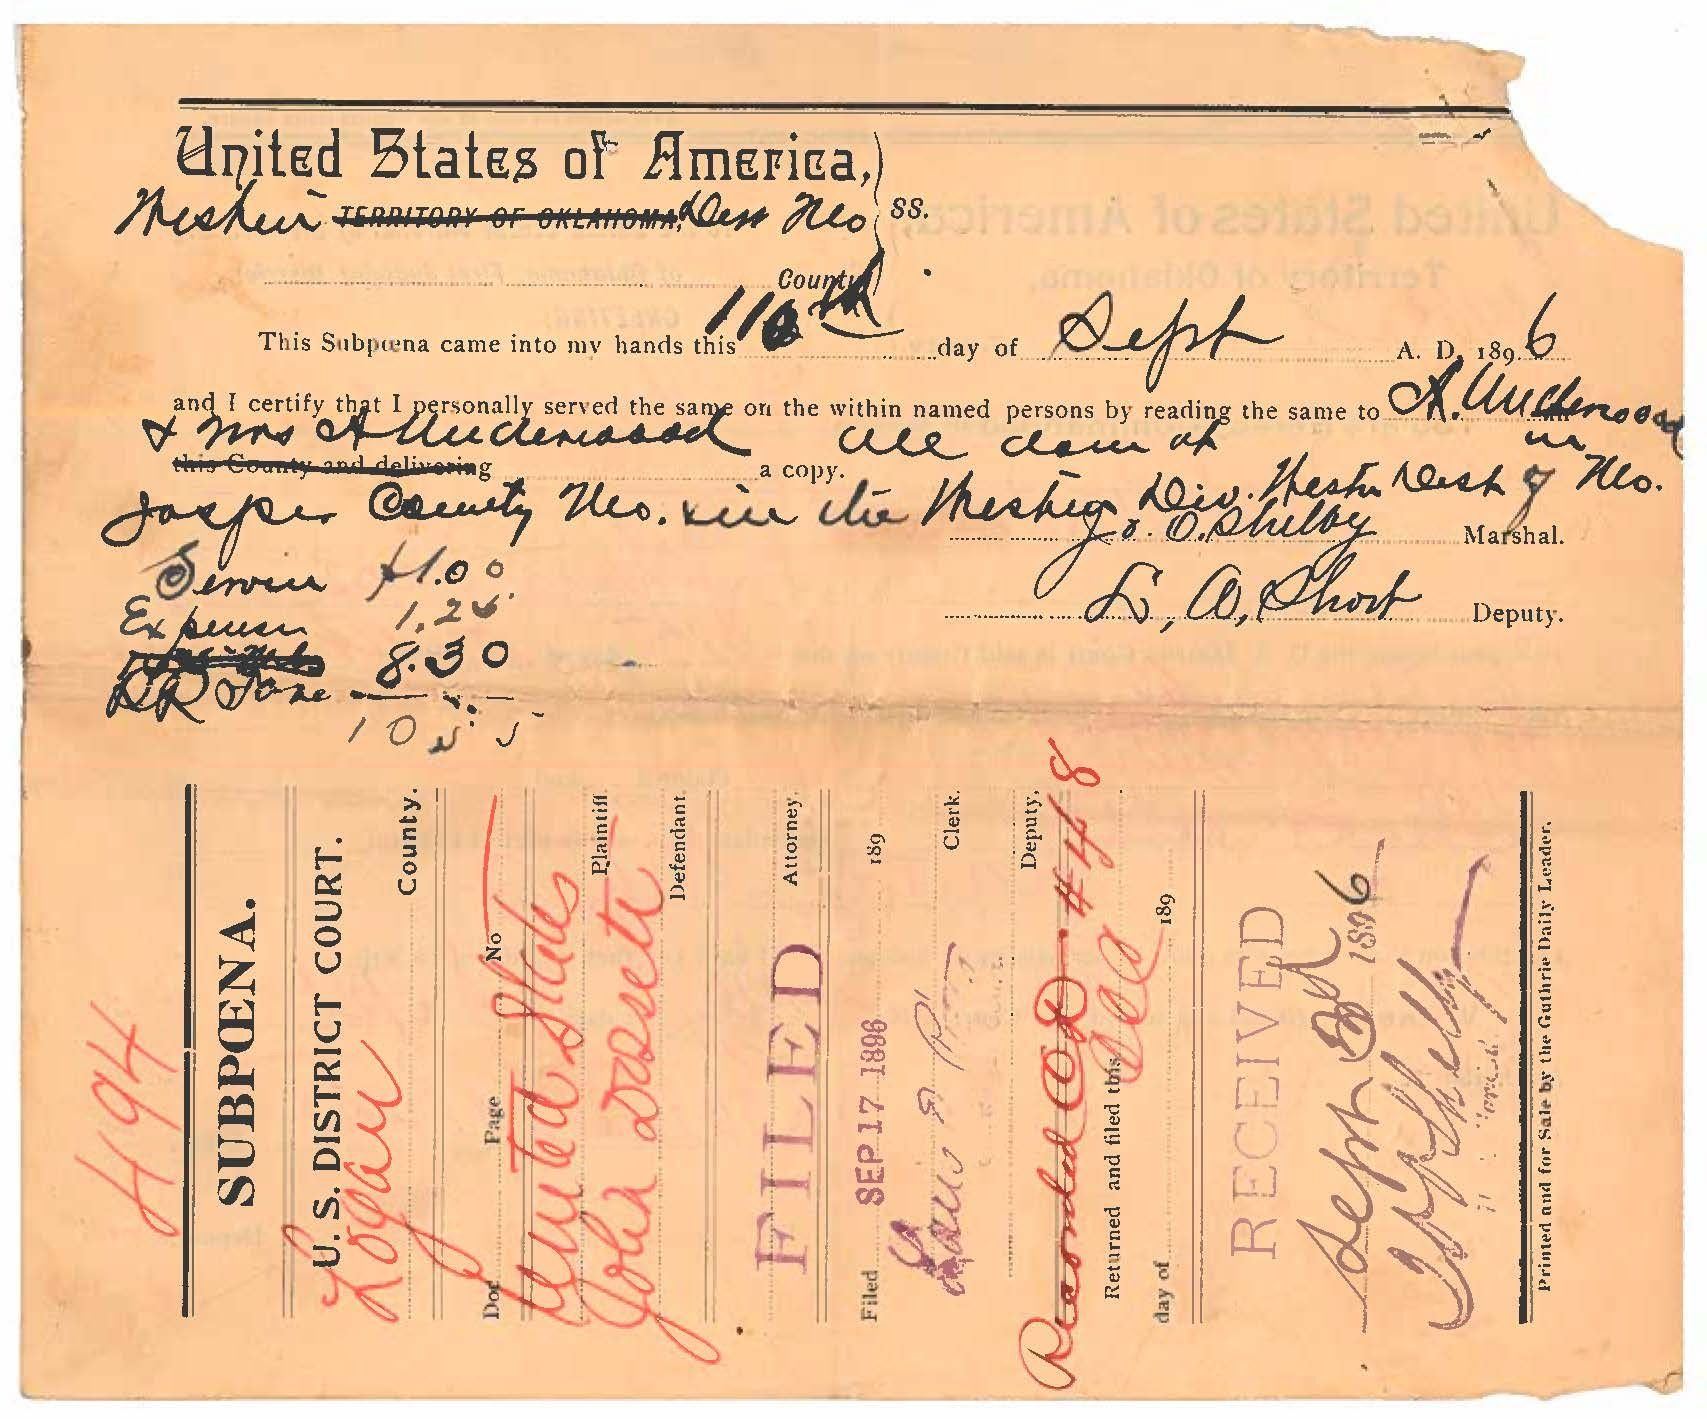 United States of America,
Western TERRITORY OF OKLAHOMA, Dist Mo ss.
County
This Subpœna came into my hands this 11th day of Sept A. D. 1896
and I certify that I personally served the same on the within named persons by reading the same to A. Underwood
& Mrs A Underwood all done at in
this County and delivering a copy.
Jasper County Mo. in the Western Div. Western Dist of Mo.
J. O. Shelby Marshal.
Service $1.00
L, A, Short Deputy.
Expenses 1.25
RR Fare 8.30
10 55
494
SUBPŒNA.
U. S. DISTRICT COURT.
Logan County.
Doc Page No
United States Plaintiff
John Dossett
Defendant
Attorney.
FILED
Filed SEP 17 1896 189
Clerk.
Deputy,
Recorded O.D. #448
Returned and filed this
day of 189
RECEIVED
Sept 3d 1896
J O Shelby
Printed and for Sale by the Guthrie Daily Leader.